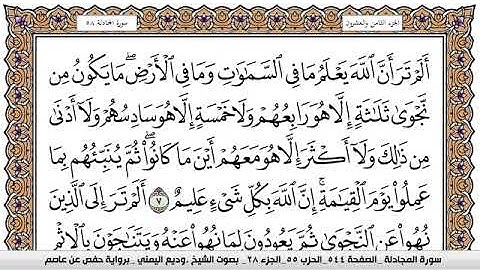 الجزء الثامن والعشرون
سورة المجادلة ٥٨
أَلَمْ تَرَ أَنَّ ٱللَّهَ يَعْلَمُ مَا فِى ٱلسَّمَٰوَٰتِ وَمَا فِى ٱلْأَرْضِ ۖ مَا يَكُونُ مِن
نَّجْوَىٰ ثَلَٰثَةٍ إِلَّا هُوَ رَابِعُهُمْ وَلَا خَمْسَةٍ إِلَّا هُوَ سَادِسُهُمْ وَلَآ أَدْنَىٰ
مِن ذَٰلِكَ وَلَآ أَكْثَرَ إِلَّا هُوَ مَعَهُمْ أَيْنَ مَا كَانُوا۟ ۖ ثُمَّ يُنَبِّئُهُم بِمَا
عَمِلُوا۟ يَوْمَ ٱلْقِيَٰمَةِ ۚ إِنَّ ٱللَّهَ بِكُلِّ شَىْءٍ عَلِيمٌ ٧ أَلَمْ تَرَ إِلَى ٱلَّذِينَ
نُهُوا۟ عَنِ ٱلنَّجْوَىٰ ثُمَّ يَعُودُونَ لِمَا نُهُوا۟ عَنْهُ وَيَتَنَٰجَوْنَ بِٱلْإِثْمِ
سورة المجادلة _الصفحة ٥٤٤_الحزب ٥٥_الجزء ٢٨_ بصوت الشيخ _وديع اليمني _برواية حفص عن عاصم